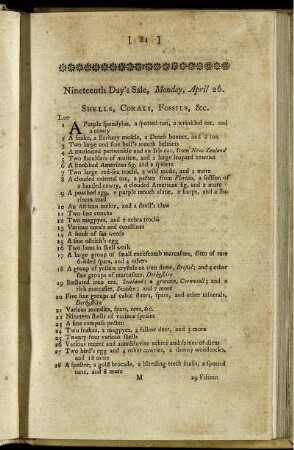 [ 21 ]
Nineteenth Day's Sale, Monday, April 26.
SHELLS, CORALS, FOSSILS, &c.
LOT
1 A Purple spondylus, a spotted tun, a wrinkled ear, and
a cowry
2 A snake, a Barbary muscle, a Dutch bonnet, and a tun
3 Two large and fine bull's mouth helmets
4 A muricated periwinkle and an fine ear, from New Zealand
5 Two shoulders of mutton, and a large leopard cowries
6 A knobbed American fig, and 2 more
7 Two large red-sea trochi, a wild music, and 2 more
8 A clouded oriental tun, a pecten from Florida, a
of a banded cowry, a clouded American fig, and 2 more
9 A poached egg, a purple mouth 2 harps, and a
toad
10 An African melon, and a devil's claw
11 Two fine conchs
12 Two magpyes, and 2 zebra trochi
13 Various corals and corallines
14 A book of sea weeds
15 A fine ostrich's egg
16 Two lions in shell work
17 A large group of small cockscomb marcasites, ditto of rare
and 9 others
18 A group of yellow crystals on iron stone, Bristol; and 5 other
fine groups of marcasites, Derbyshire
19 iron ore, Scotland; a granite, Cornwall; and a
rich marcasite, and 7 more
20 Five fine groups of cubic fluors, spars, and other minerals,
Derbyshire
21 Various mundics, spars, ores, &c.
22 Nineteen shells of various species
23 A fine compass pecten
24 Two snakes, 2 magpyes, 2 fallow deer, and 5 more
25 Twenty-four various shells
26 Various recent and antediluvian echini and spines of ditto
27 Two bird's egg and 4 other cowries, 2 thorny woodcocks,
and 18 more
28 A spectre, a gold brocade, 2 bleeding teeth snails, a spotted
tun, and 8 more
M 29 Fifteen